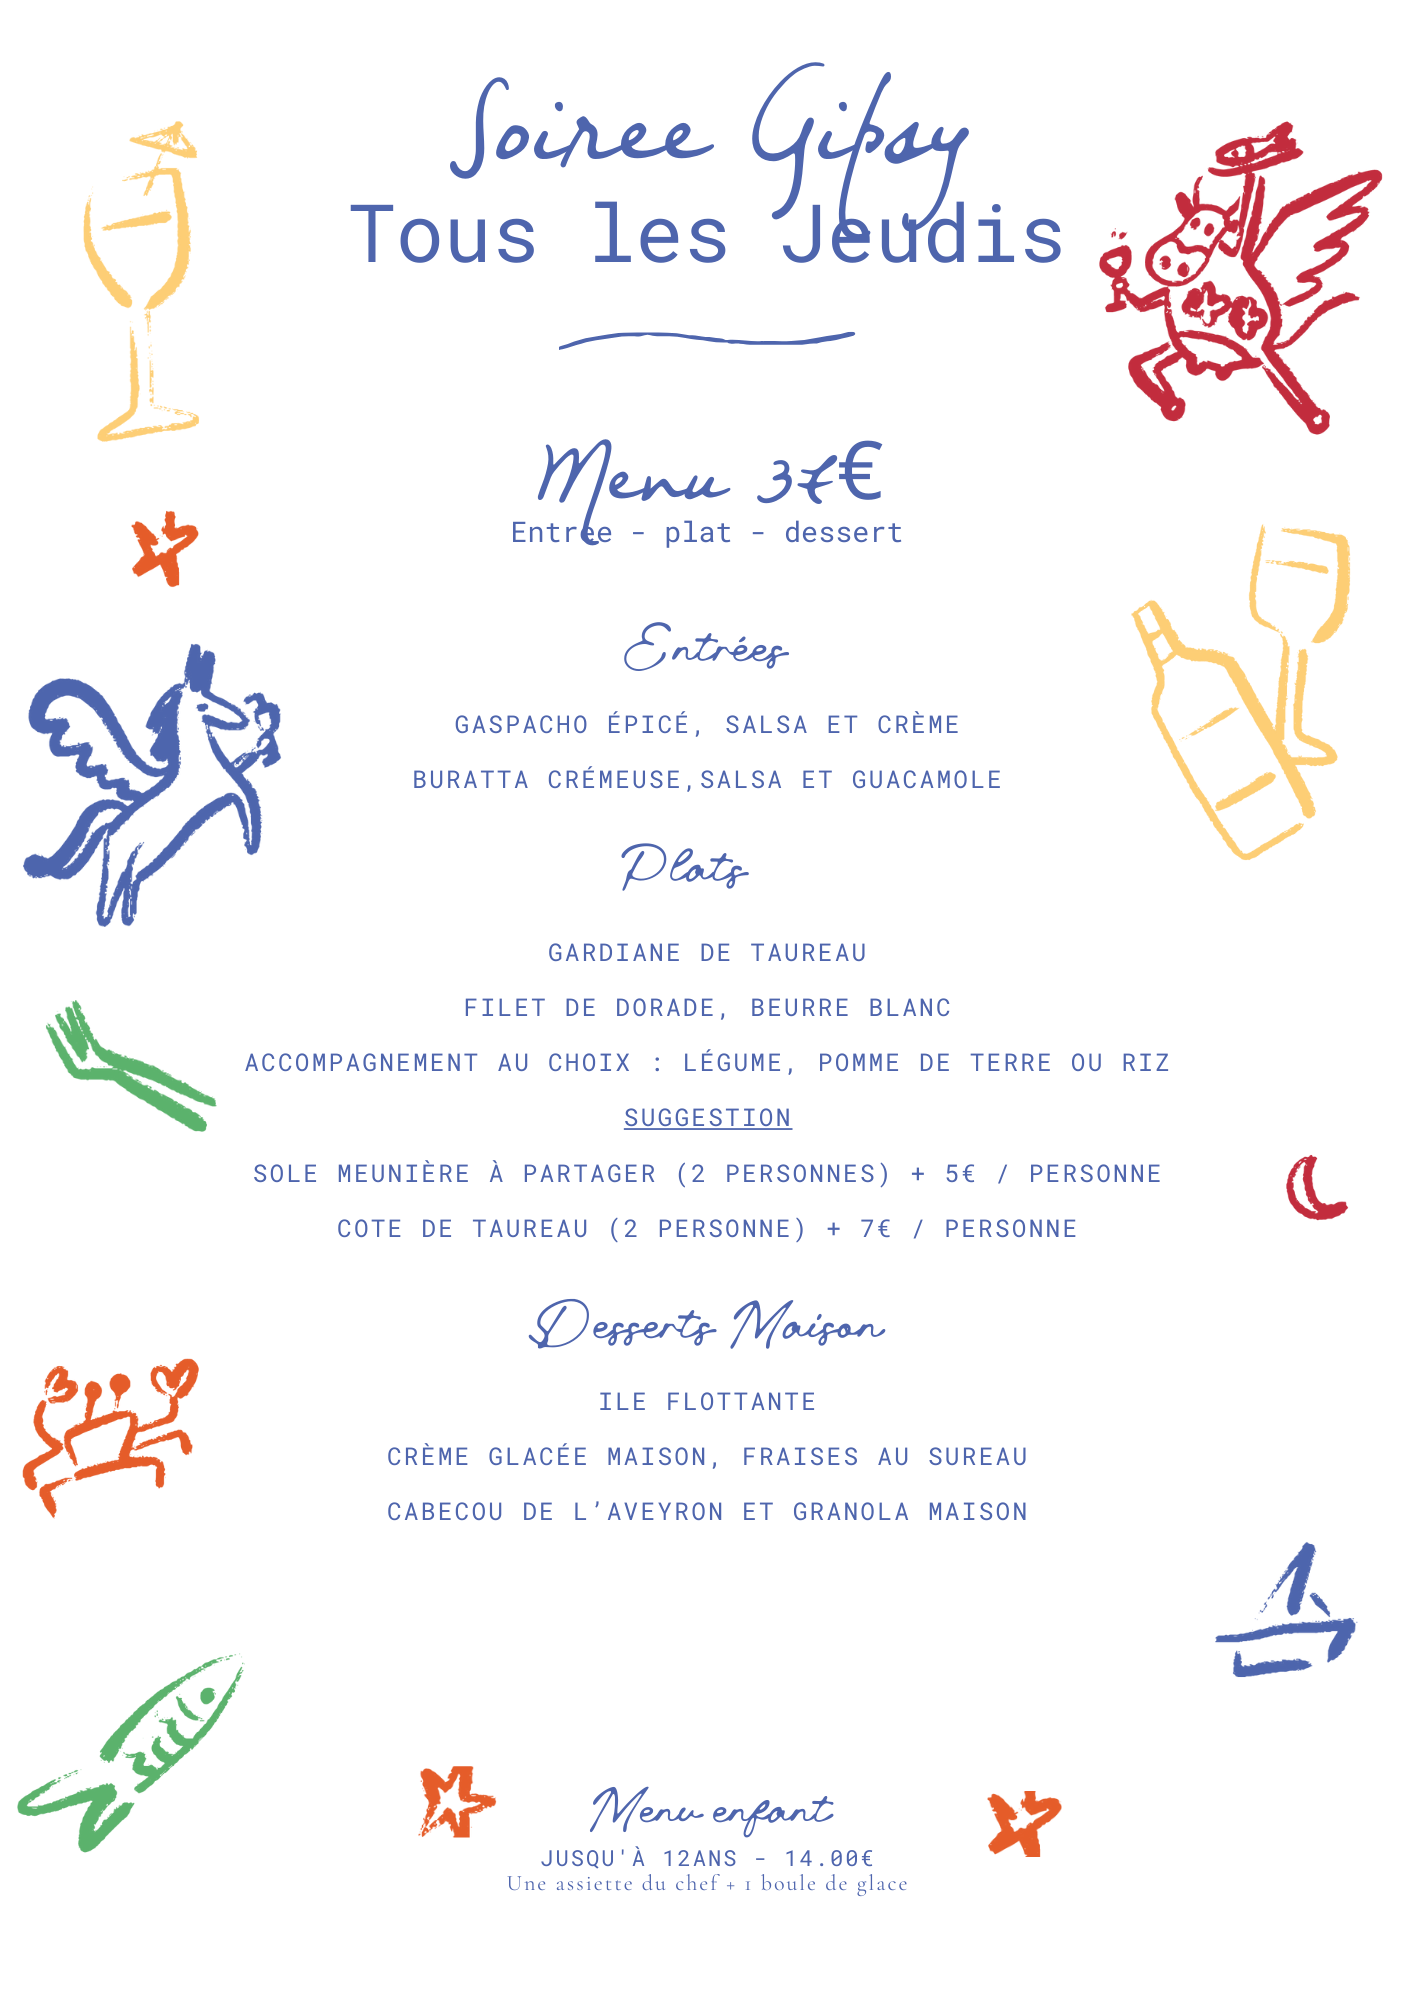 Soiree Gipsy
Tous les Jeudis
Menu 37€
Entree - plat - dessert
Entrées
GASPACHO ÉPICÉ, SALSA ET CRÈME
BURATTA CRÉMEUSE,SALSA ET GUACAMOLE
Plats
GARDIANE DE TAUREAU
FILET DE DORADE, BEURRE BLANC
ACCOMPAGNEMENT AU CHOIX : LÉGUME, POMME DE TERRE OU RIZ
SUGGESTION
SOLE MEUNIÈRE À PARTAGER (2 PERSONNES) + 5€ / PERSONNE
COTE DE TAUREAU (2 PERSONNE) + 7€ / PERSONNE
Desserts Maison
ILE FLOTTANTE
CRÈME GLACÉE MAISON, FRAISES AU SUREAU
CABECOU DE L’AVEYRON ET GRANOLA MAISON
Menu enfant
JUSQU'À 12ANS - 14.00€
Une assiette du chef + 1 boule de glace